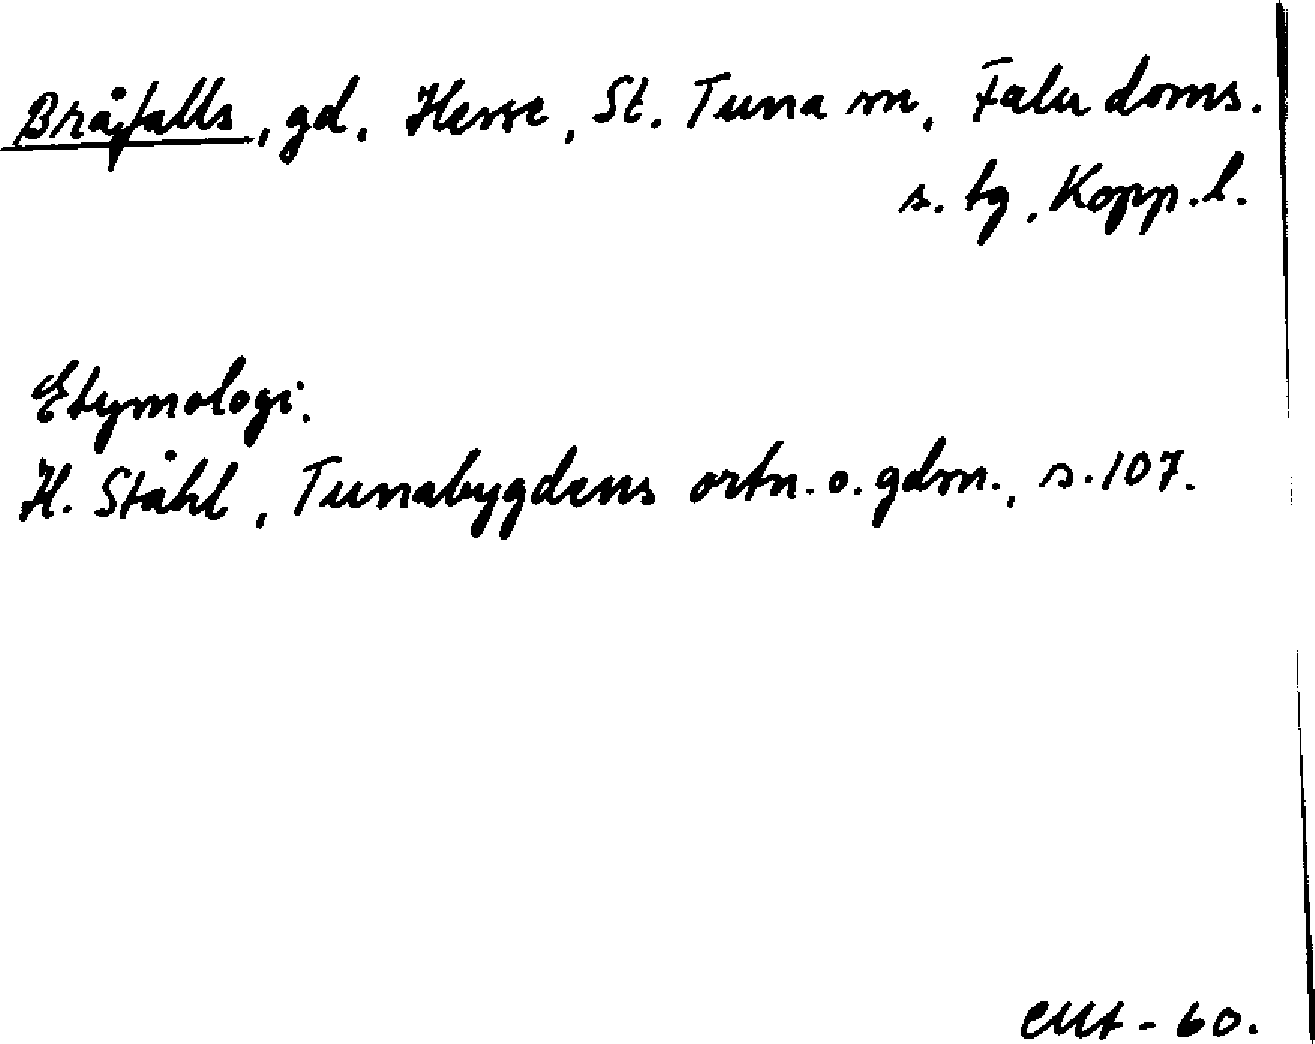 Bråfalls, gd, Herre, St. Tuna sn, Falu doms.
s. tg, Kopp. l.
Etymologi.
H. Ståhl, Tunabygdens ortn. o. gdrn., s. 107.
- 60.